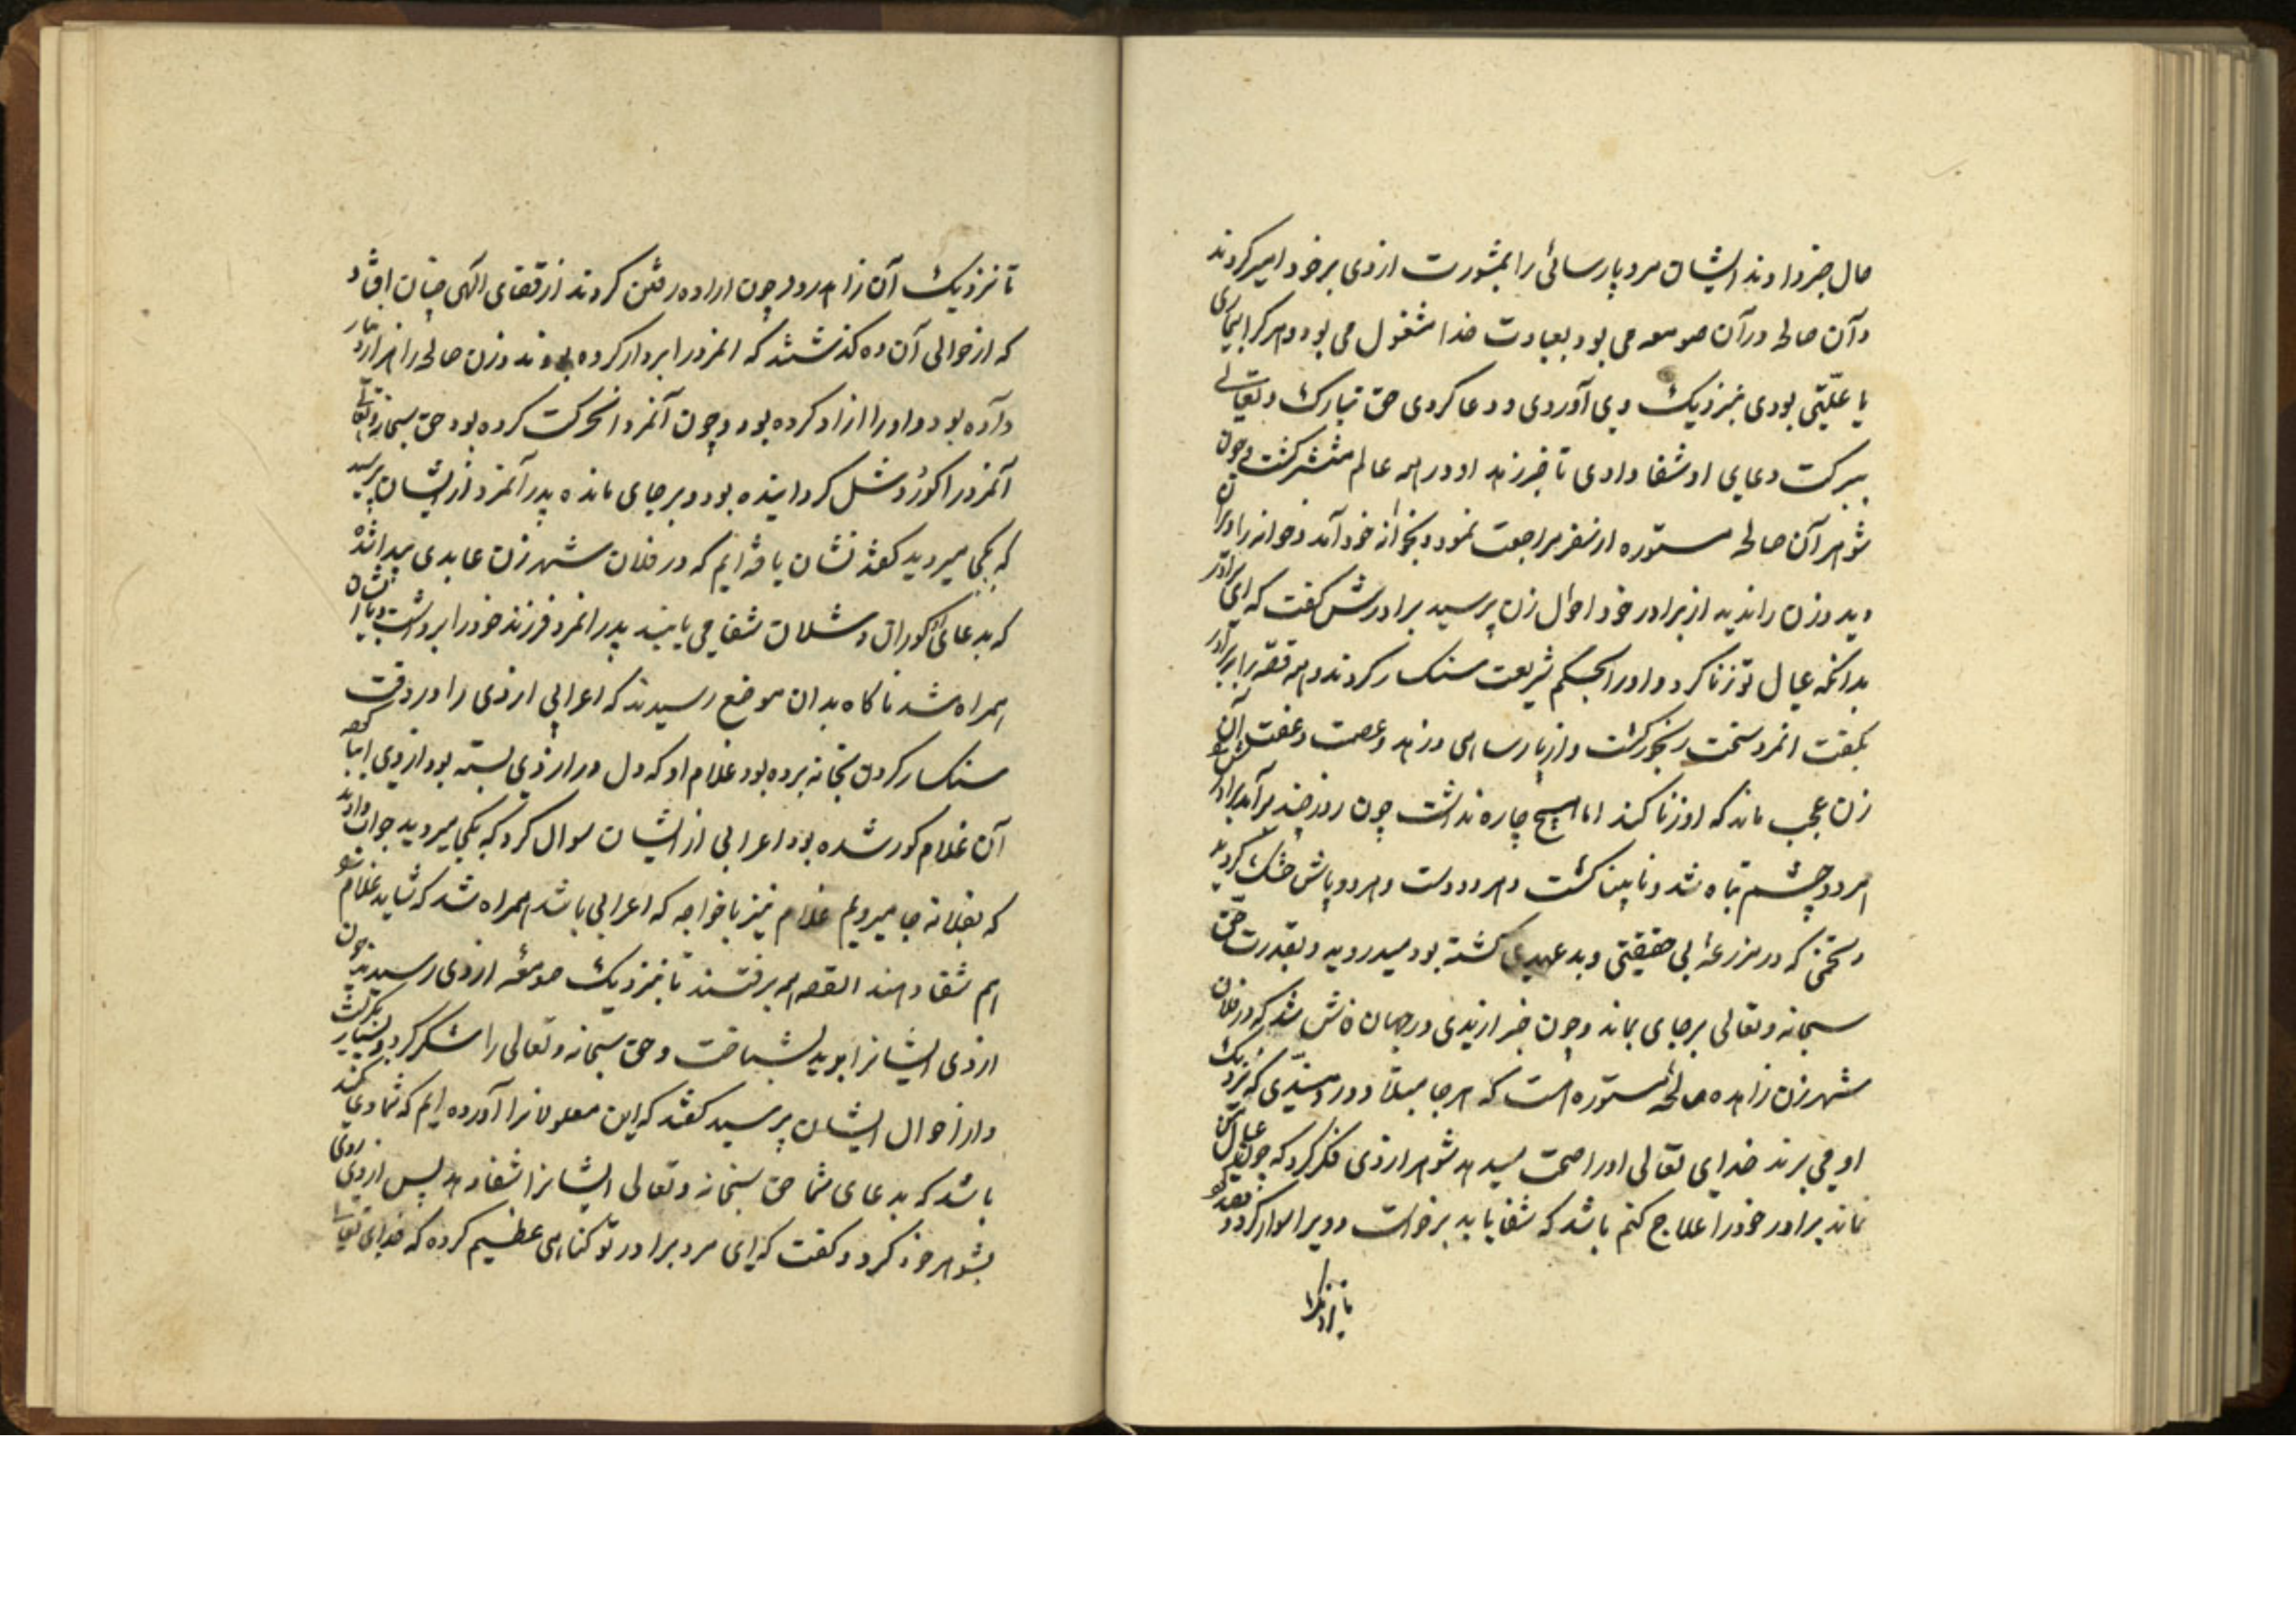 حال خبر دادند ایشان مرد پارسائی را بمشورت ارزی بر خود امیر کردند
و آن صالحه در آن صومعه می بود بعبادت خدا مشغول می بود و هر کرا بیماری
یا علّتی بودی بنزدیک وی آوردی و دعا کردی حق تبارک و تعالی
ببرکت دعای او شفا دادی تا خبر زهد او در همه عالم منتشر کشت و چون
شوهر آن صالحه مستوره از سفر مراجعت نمود و بخانه خود آمد و خانه را ویران
دید و زن را ندید از برادر خود احوال زن پرسید برادرش کفت که ای برادر
بدانکه عیال تو زنا کرد و او را بحکم شریعت سنکسار کردند و همه قصه را برادر
بکفت انمرد سخت رنجور کشت و از پارساهی و زهد و عصمت و عفت آن
زن عجب ماند که او زنا کند اما هیچ چاره نداشت چون روز چند برآمد برادرش
هر دو چشم تباه شد و نابینا کشت و هر دو دست و هر دو پاش خشک کردید
و تخمی که در مزرعهٔ بی حقیقتی و بد عهدی کشته بود میدروید و بقدرت حق
سبحانه و تعالی بر جای بماند و چون خبر ارزیدی در جهان فاش شد که در فلان
شهر زن زاهده صالحهٔ مستوره است که هر جا مبتلا و دردمندی که نزدیک
او می برند خدای تعالی او را صحت میدهد شوهر ارزی فکر کرد که چون عیال من
نماند برادر خود را علاج کنم باشد که شفا یابد برخواست و ویرا سوار کرد و
تا نزدیک
تا نزدیک آن زاهد رود چون اراده رفتن کردند از قضای الهی چنان افتاد
که از حوالی آن ده کذشتند که انمرد را بردار کرده بودند و زن صالحه را
داده بود و او را ازاد کرده بود و چون آنمرد انحرکت کرده بود حق سبحانه و تعالی
آنمرد را کور و شل کردانیده بود و بر جای مانده پدر آنمرد از ایشان پرسید
که بکجا میروید کفتند نشان یافته ایم که در فلان شهر زن عابدی پیدا شده
که بدعای او کوران و شلان شفا می یابند پدر انمرد فرزند خود را برداشت و با ایشان
همراه شد ناکاه بدان موضع رسیدند که اعرابی ارزی را در وقت
سنکسار کردن بخانه برده بود و غلام او که دل در ارزی بسته بود از وی
آن غلام کور شده بود اعرابی از ایشان سوال کرد که بکجا میروید جواب دادند
که بفلانه جا میرویم غلام نیز با خواجه که اعرابی باشد همراه شد که شاید غلام
هم شفا دهند القصه همه برفتند تا بنزدیک صومعهٔ ارزی رسیدند چون
ارزی ایشانرا بدید بشناخت و حق سبحانه و تعالی را شکر کرد و بسیار بکریست
و از احوال ایشان پرسید کفتند که این معلولانرا آورده ایم که شما دعا کنید
باشد که بدعای شما حق سبحانه و تعالی ایشانرا شفا دهد پس ارزی روی
بشوهر خود کرد و کفت که ای مرد برادر تو کناهی عظیم کرده که خدای تعالی